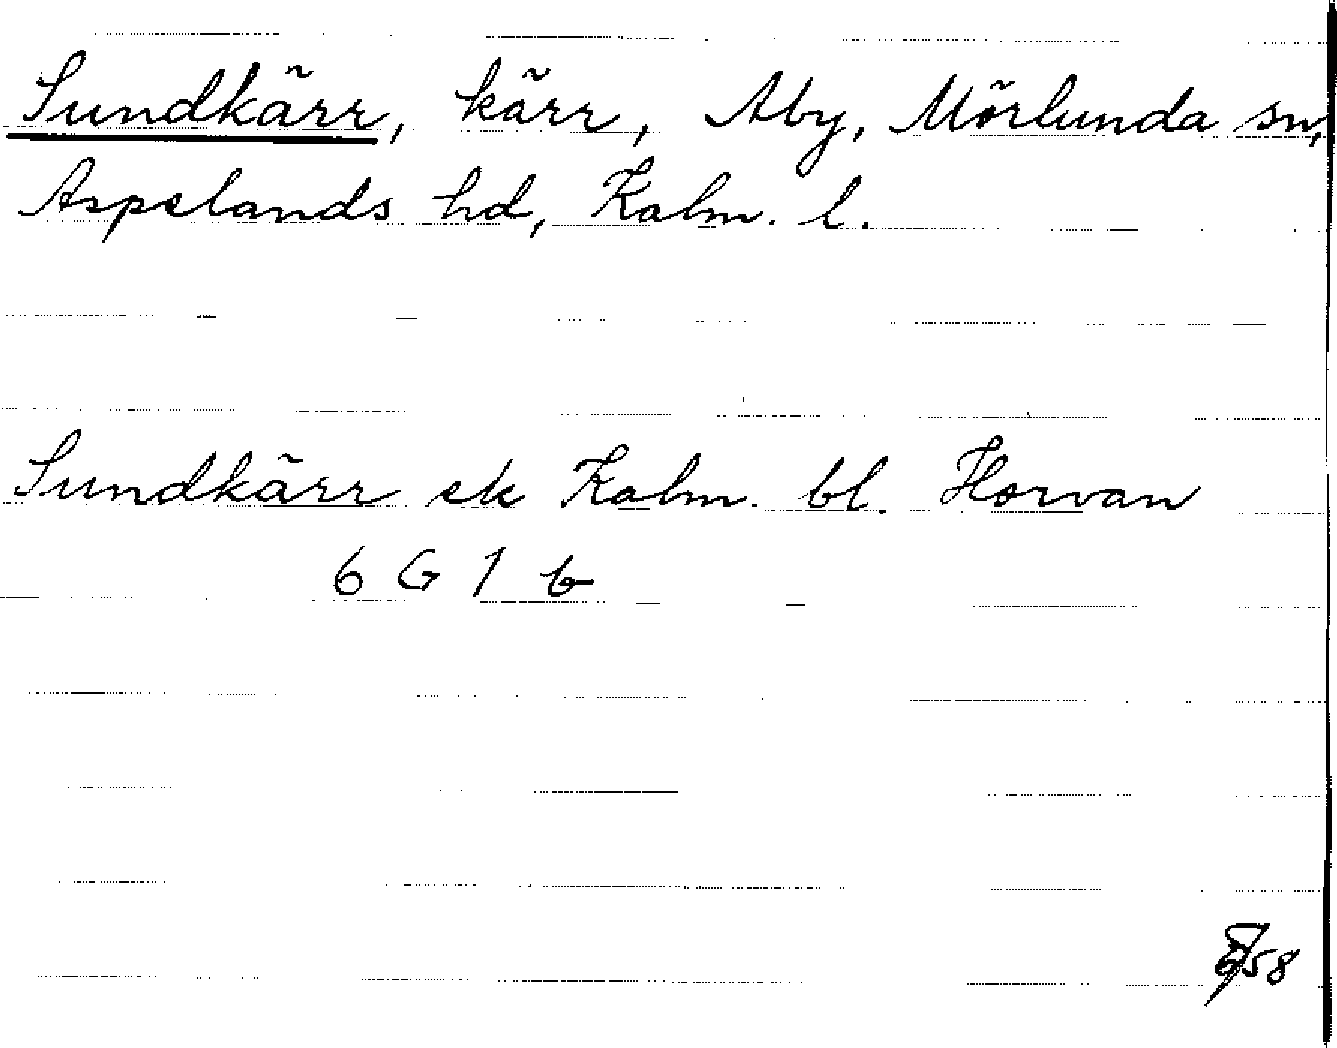 Sundkärr, kärr, Aby, Mörlunda sn,
Aspelands hd, Kalm. l.
Sundkärr ek Kalm. bl. Horvan
6 G 1 b
58